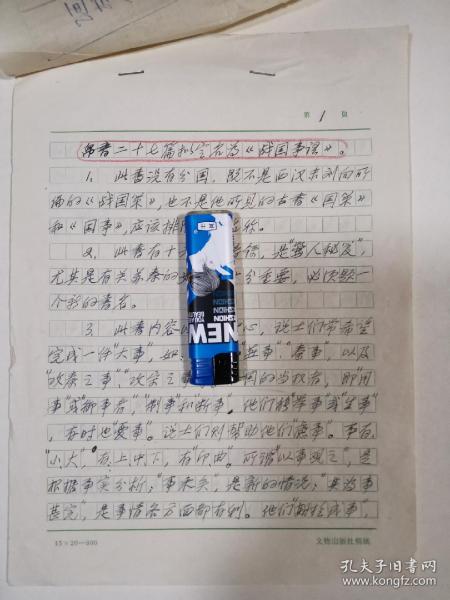 第 1 页
帛书二十七篇拟定名为《战国事语》。
1. 此书没有分国，既不是西汉末刘向所
编的《战国策》，也不是他所见的古书《国策》
和《国事》，应该排
2. 此书有十 是"惊人秘发"，
尤其是有关苏秦的 分重要，必须题一
个新的书名。
3. 此书内容 心，说士们常希望
完成一件"大事"，如 "燕事"、"秦事"，以及
"攻秦之事"、"攻宋之事" 国的当权者，即"用
事"或"御事者"，"制事"和"断事"，他们
，有时也"要事"。说士们则帮助他们"虑事"。事有
"小大"，有上中下，有 所谓"以事观之"，是
根据事实分析；"事未央"，是新的情况；"其为事
甚完"，是事情各方面都有利。他们
NEW
FASHION
FASHION
15×20=300
文物出版社稿纸
孔夫子旧书网